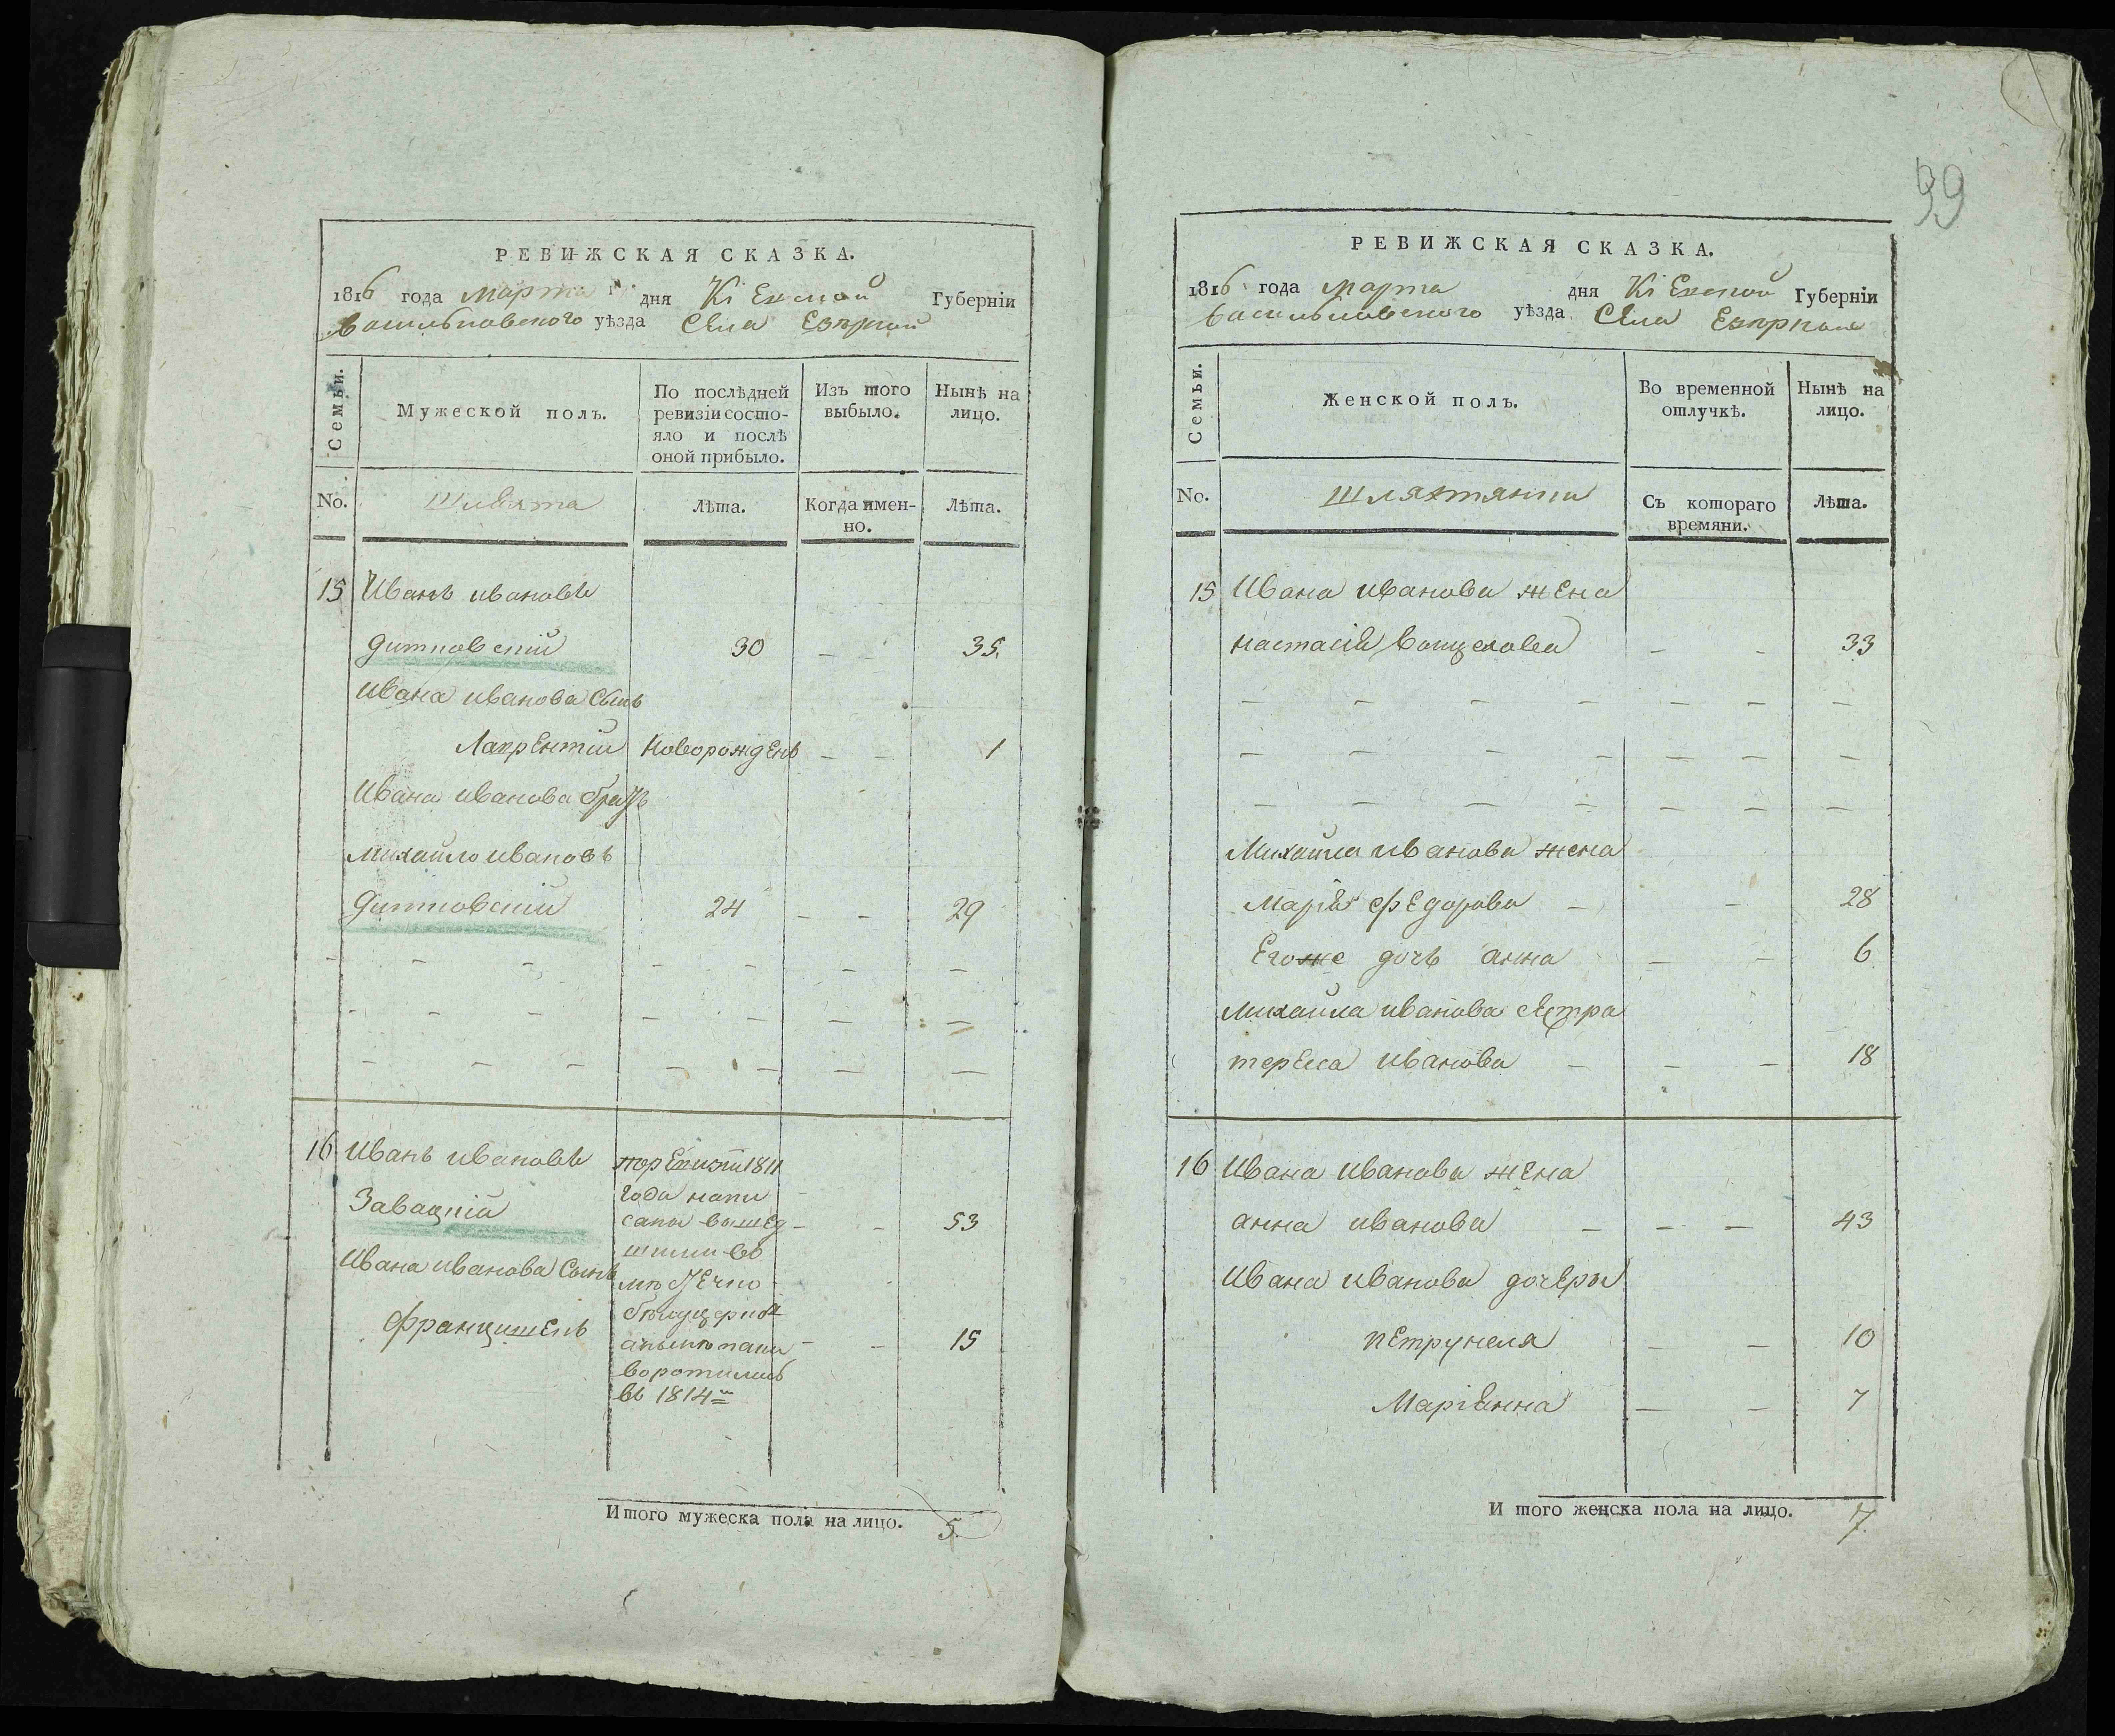 99
РЕВИЖСКАЯ СКАЗКА.
1816 года марта дня Кіевской Губерніи
васильковскаго уѣзда Села
Семьи.
Мужеской полъ.
По послѣдней
ревизіи состо-
яло и послѣ
оной прибыло.
Изъ того
выбыло.
Нынѣ на
лицо.
No.
Шляхта
Лѣта.
Когда имен-
но.
Лѣта.
15 Иванъ ивановъ
дитковскій 30 — — 35.
Ивана иванова Сынъ
Лаврентій Новорожденъ — — 1
Ивана иванова братъ
михайло ивановъ
Дитковскій 24 — — 29
16 Иванъ ивановъ 1811
Завацкій года напи
саны вышед — — 53
шими въ
Ивана иванова Сынъ
францишекъ — — 15
воротились
въ 1814м
Итого мужеска пола на лицо. 5.
РЕВИЖСКАЯ СКАЗКА.
1816 года марта дня Кіевской Губерніи
васильковскаго уѣзда Села
Семьи.
Женской полъ.
Во временной
отлучкѣ.
Нынѣ на
лицо.
No.
Шляхтянки
Съ котораго
времяни.
Лѣта.
15 Ивана иванова жена
настасія — — 33
Михайла иванова жена
Марія федорова — — 28
Егоже дочь анна — — 6
михайла иванова сестра
тереса иванова — — — 18
16 Ивана иванова жена
анна иванова — — — 43
Ивана иванова дочери
петрунеля — — 10
Маріанна — — 7
И того женска пола на лицо. 7.